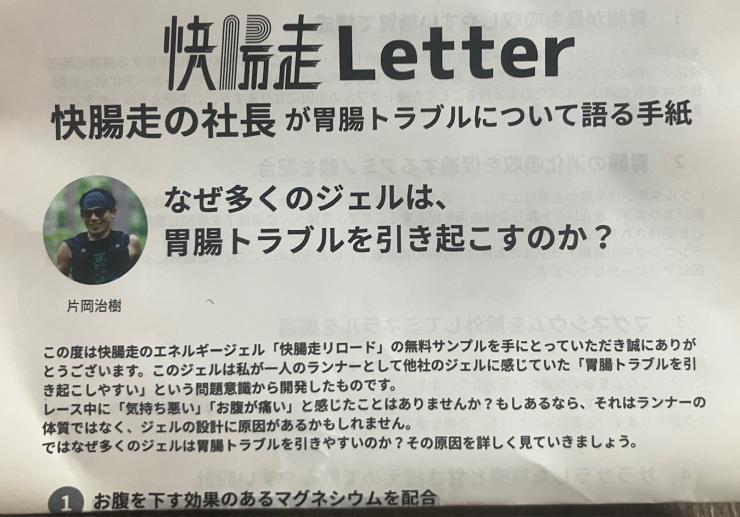 快腸走 Letter
快腸走の社長 が胃腸トラブルについて語る手紙
なぜ多くのジェルは、
胃腸トラブルを引き起こすのか？
片岡治樹
この度は快腸走のエネルギージェル「快腸走リロード」の無料サンプルを手にとっていただき誠にありが
とうございます。このジェルは私が一人のランナーとして他社のジェルに感じていた「胃腸トラブルを引
き起こしやすい」という問題意識から開発したものです。
レース中に「気持ち悪い」「お腹が痛い」と感じたことはありませんか？もしあるなら、それはランナーの
体質ではなく、ジェルの設計に原因があるかもしれません。
ではなぜ多くのジェルは胃腸トラブルを引きやすいのか？その原因を詳しく見ていきましょう。
1 お腹を下す効果のあるマグネシウムを配合